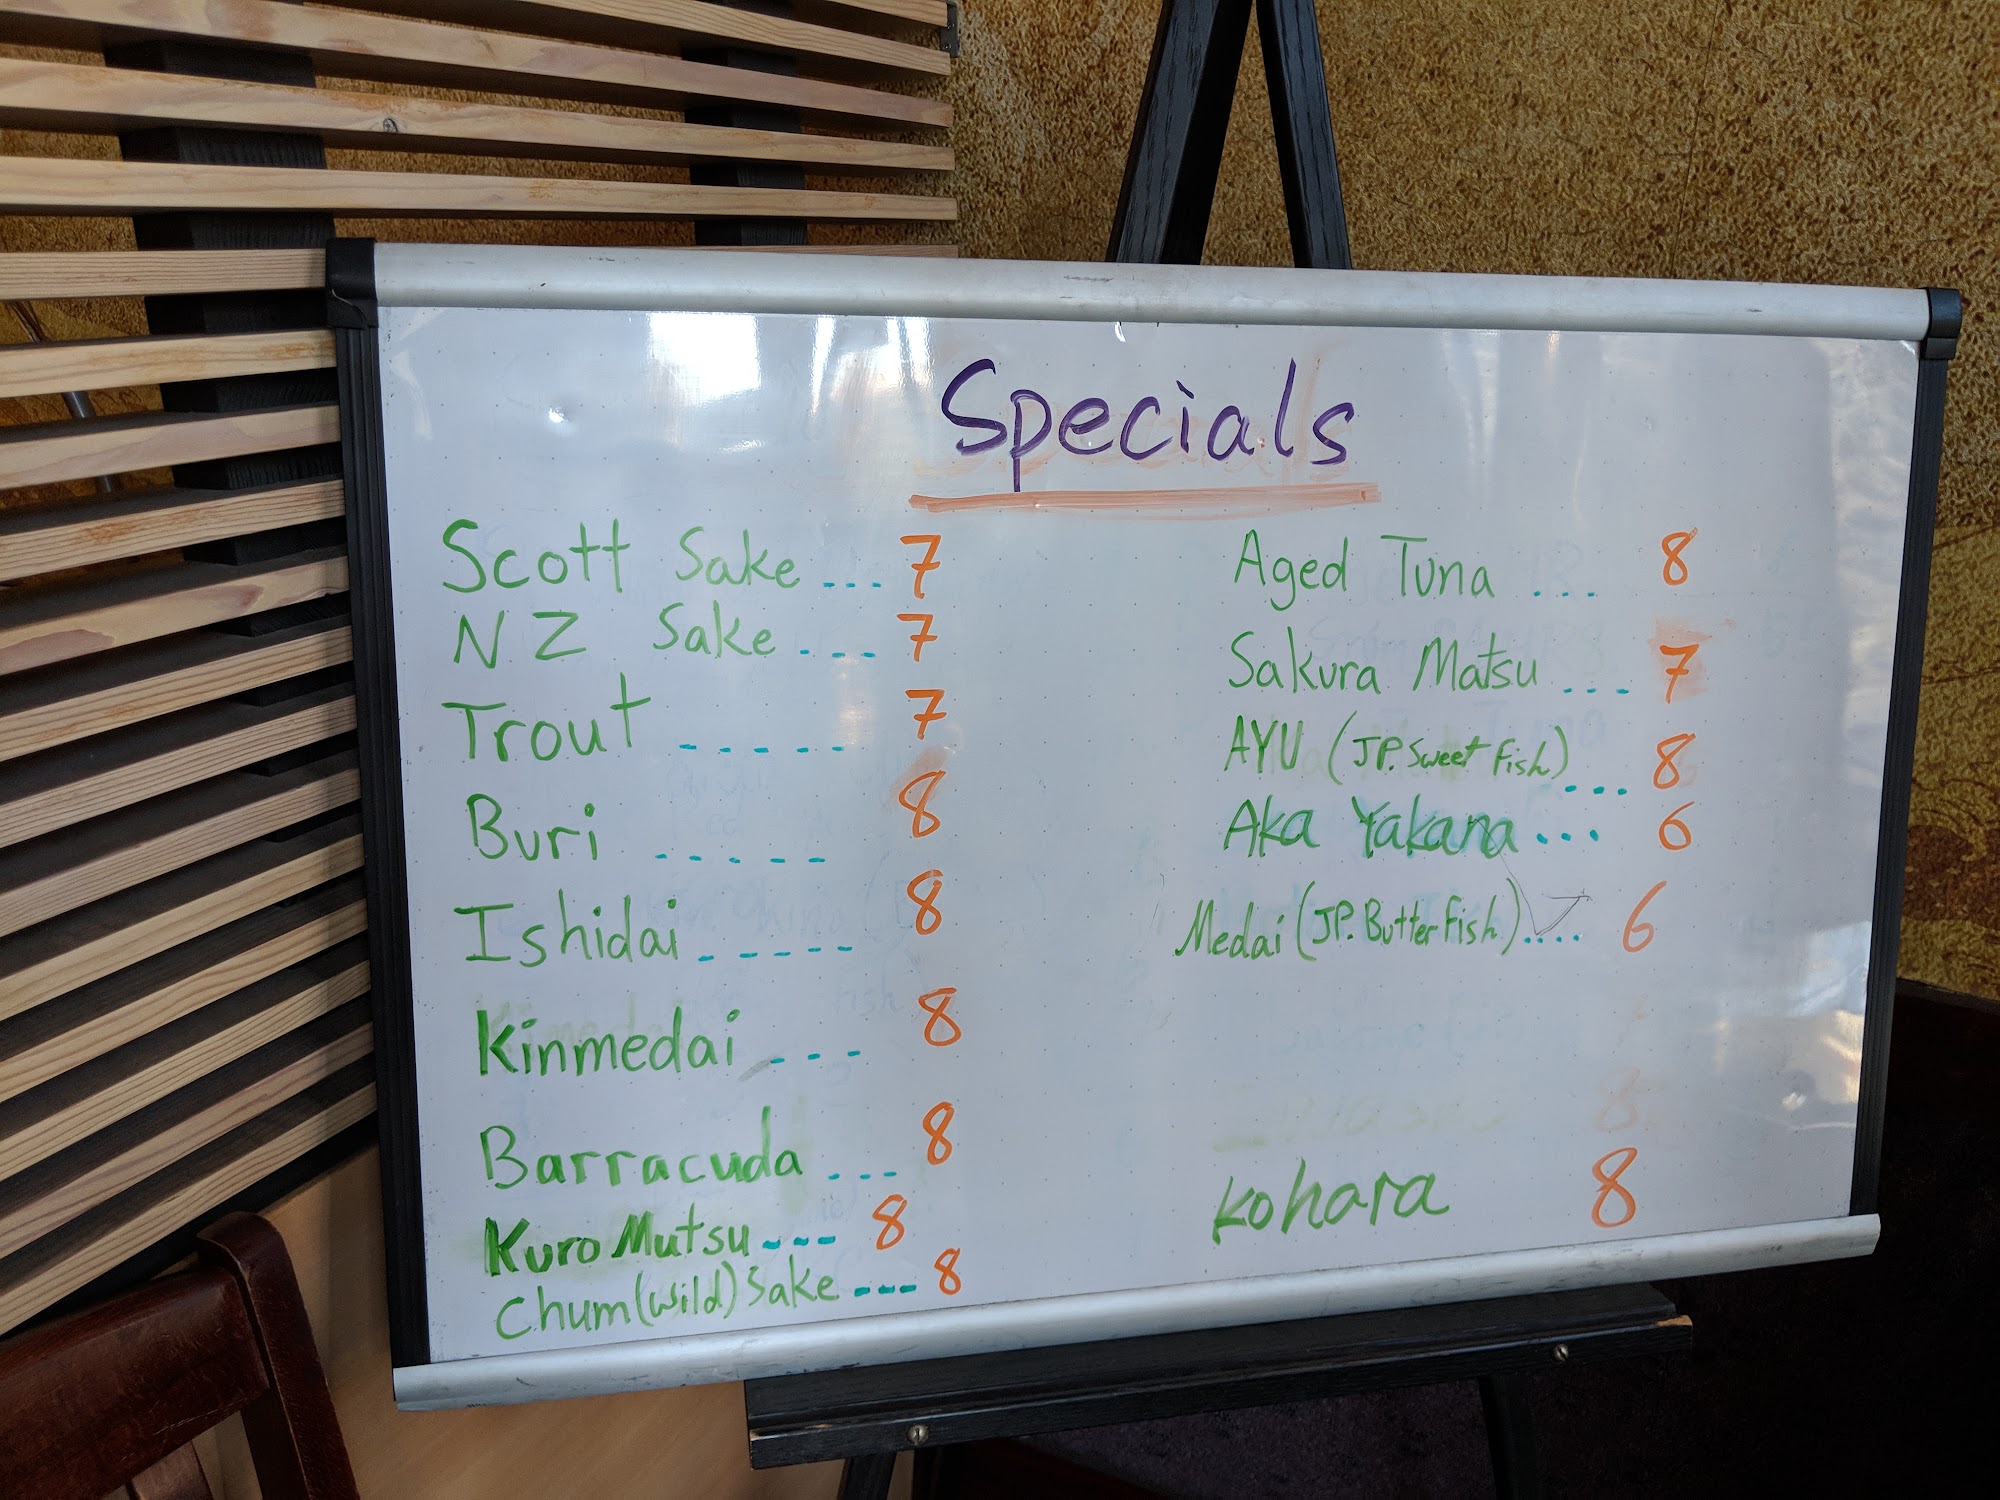 Specials
Scott Sake ... 7
NZ Sake ... 7
Trout ----- 7
Buri ----- 8
Ishidai ----- 8
Kinmedai --- 8
Barracuda --- 8
Kuro Mutsu --- 8
Chum (Wild) Sake --- 8
Aged Tuna ... 8
Sakura Matsu ... 7
AYU (JP. Sweet Fish) ... 8
Aka Yakana ... 6
Medai (JP. Butter Fish) .... 6
Kohara 8